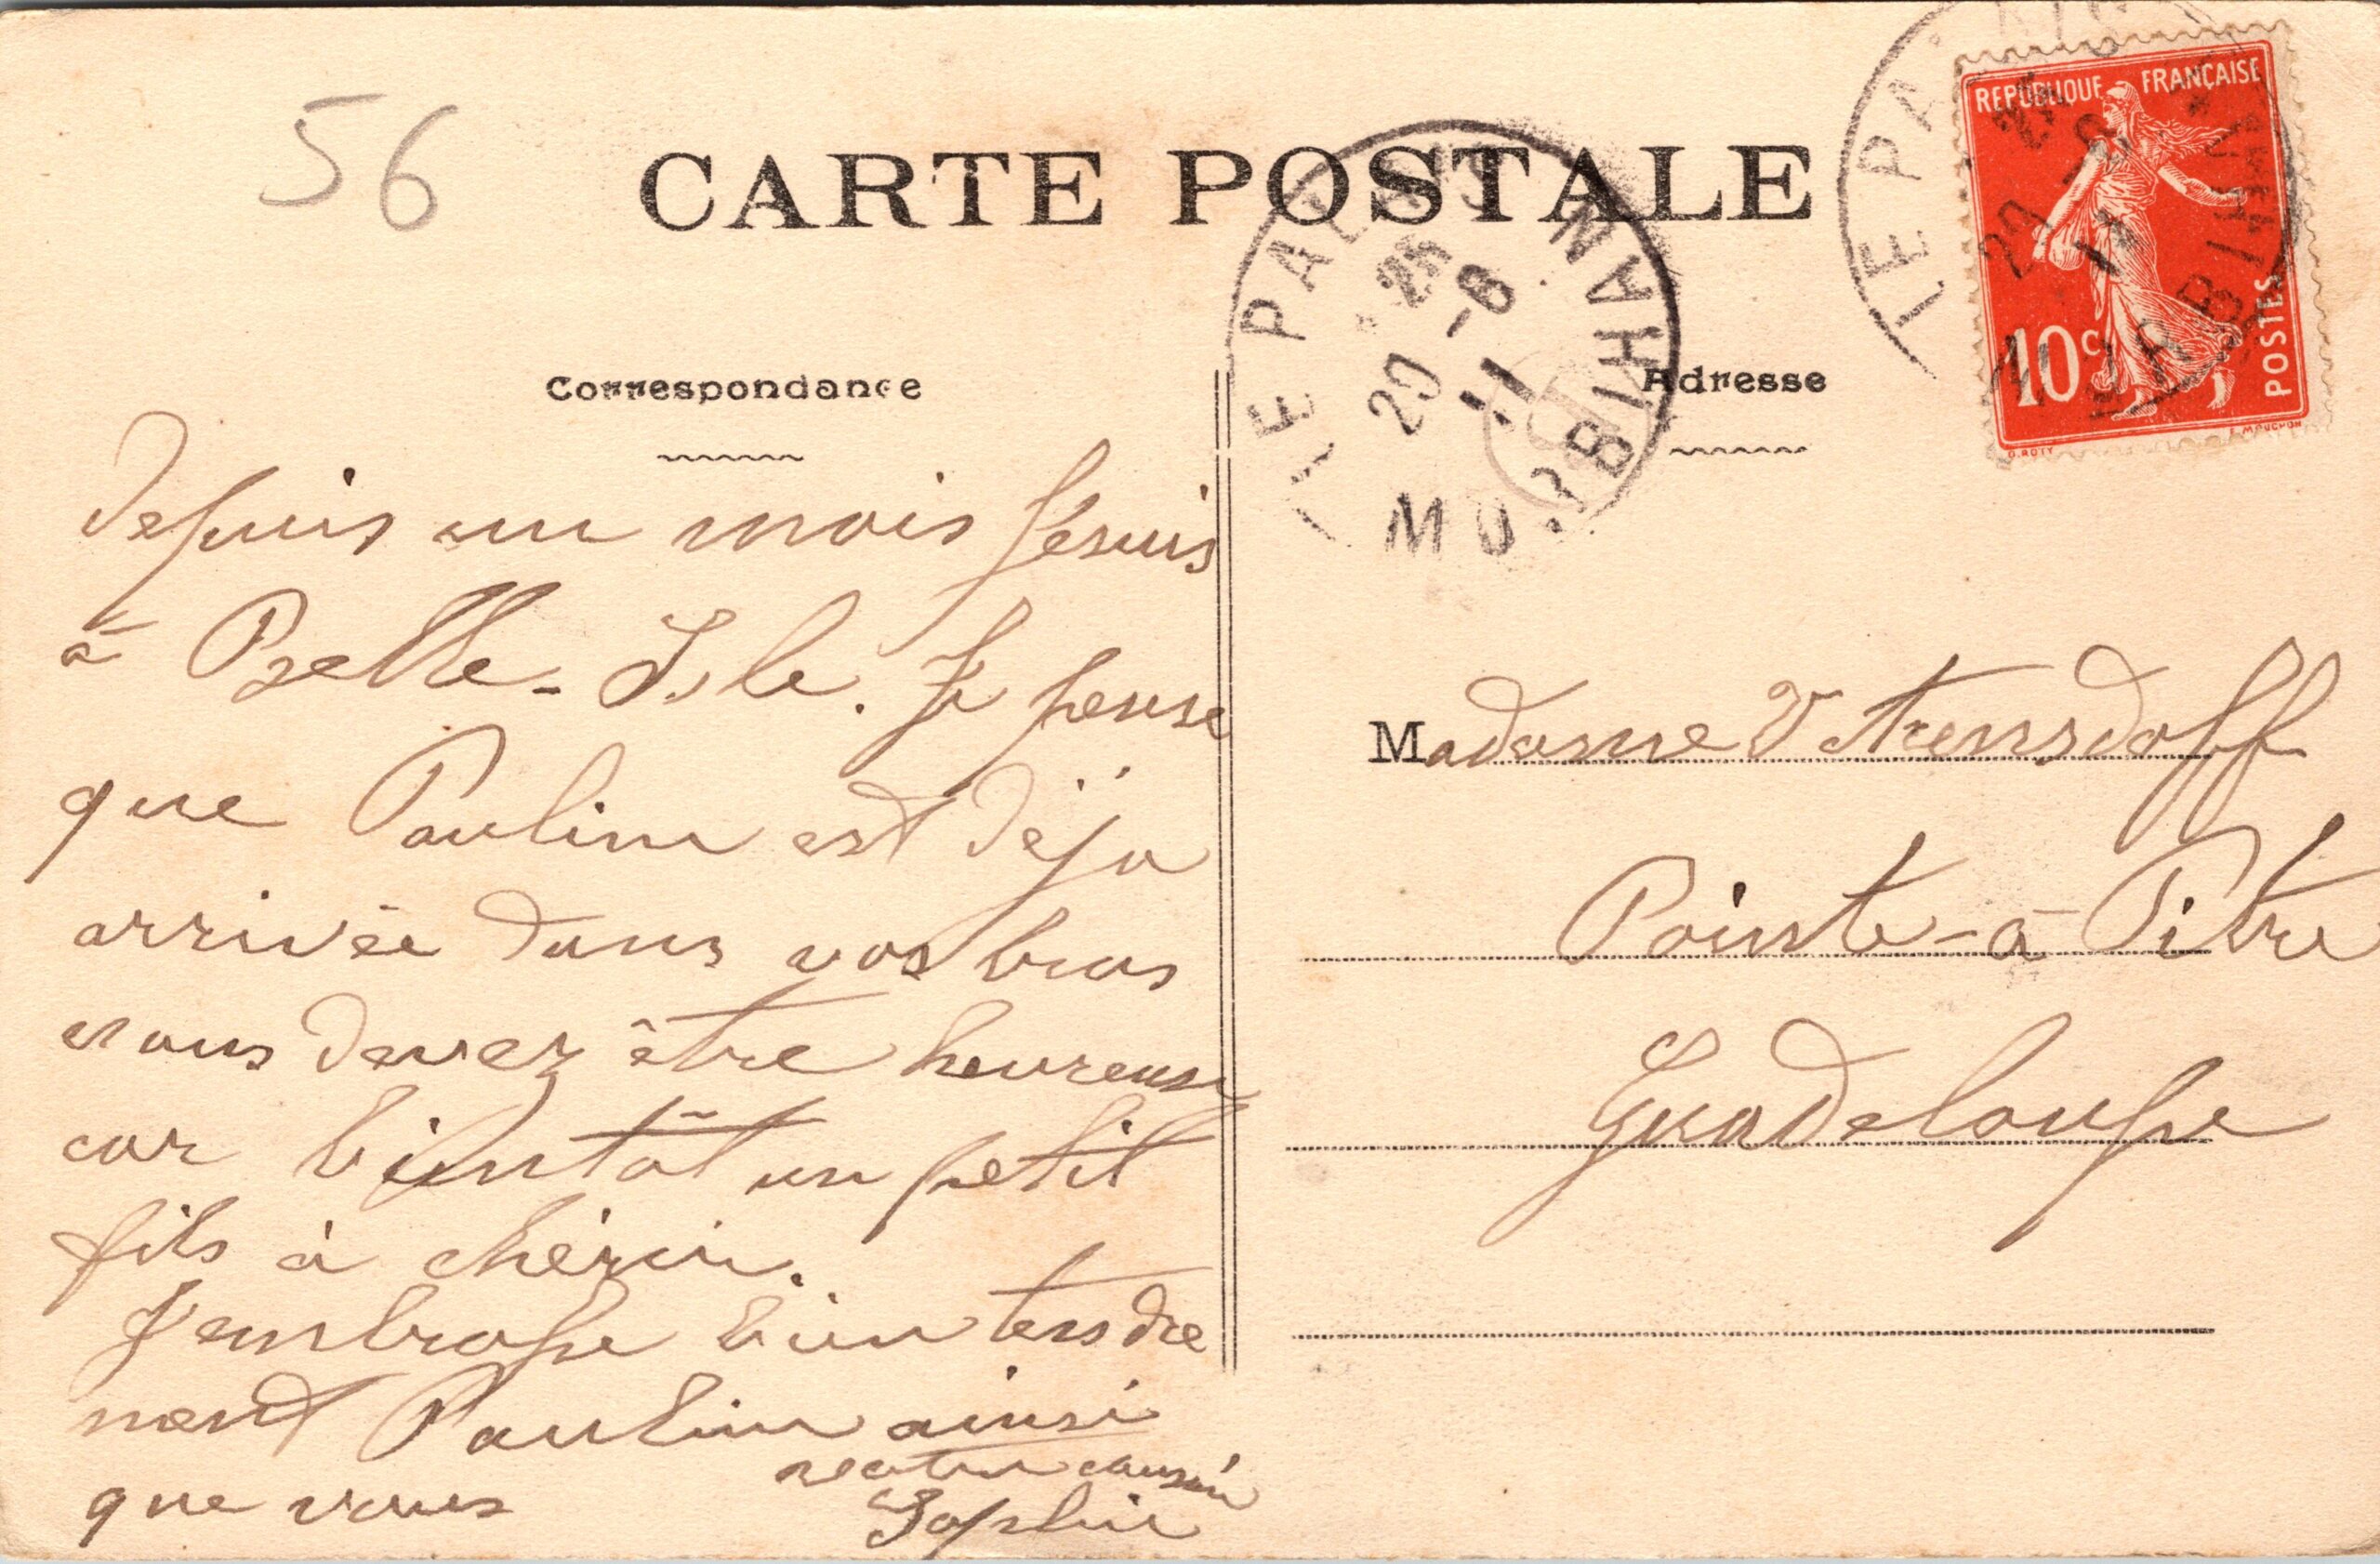 56
CARTE POSTALE
REPUBLIQUE FRANÇAISE
10c
POSTES
O. ROTY
E. MOUCHON
LE PALAIS
20 -8
11
MORBIHAN
LE PALAIS
20 -8
11
MORBIHAN
Correspondance
Adresse
depuis un mois je suis
à Belle-Isle. Je pense
que Pauline est déja
arrivée dans vos bras
vous devez être heureuse
car bientôt un petit
fils à chérir.
J'embrasse bien tendre
ment Pauline ainsi
que vous
cousine
Sophie
Madame
Pointe-à-Pitre
Guadeloupe